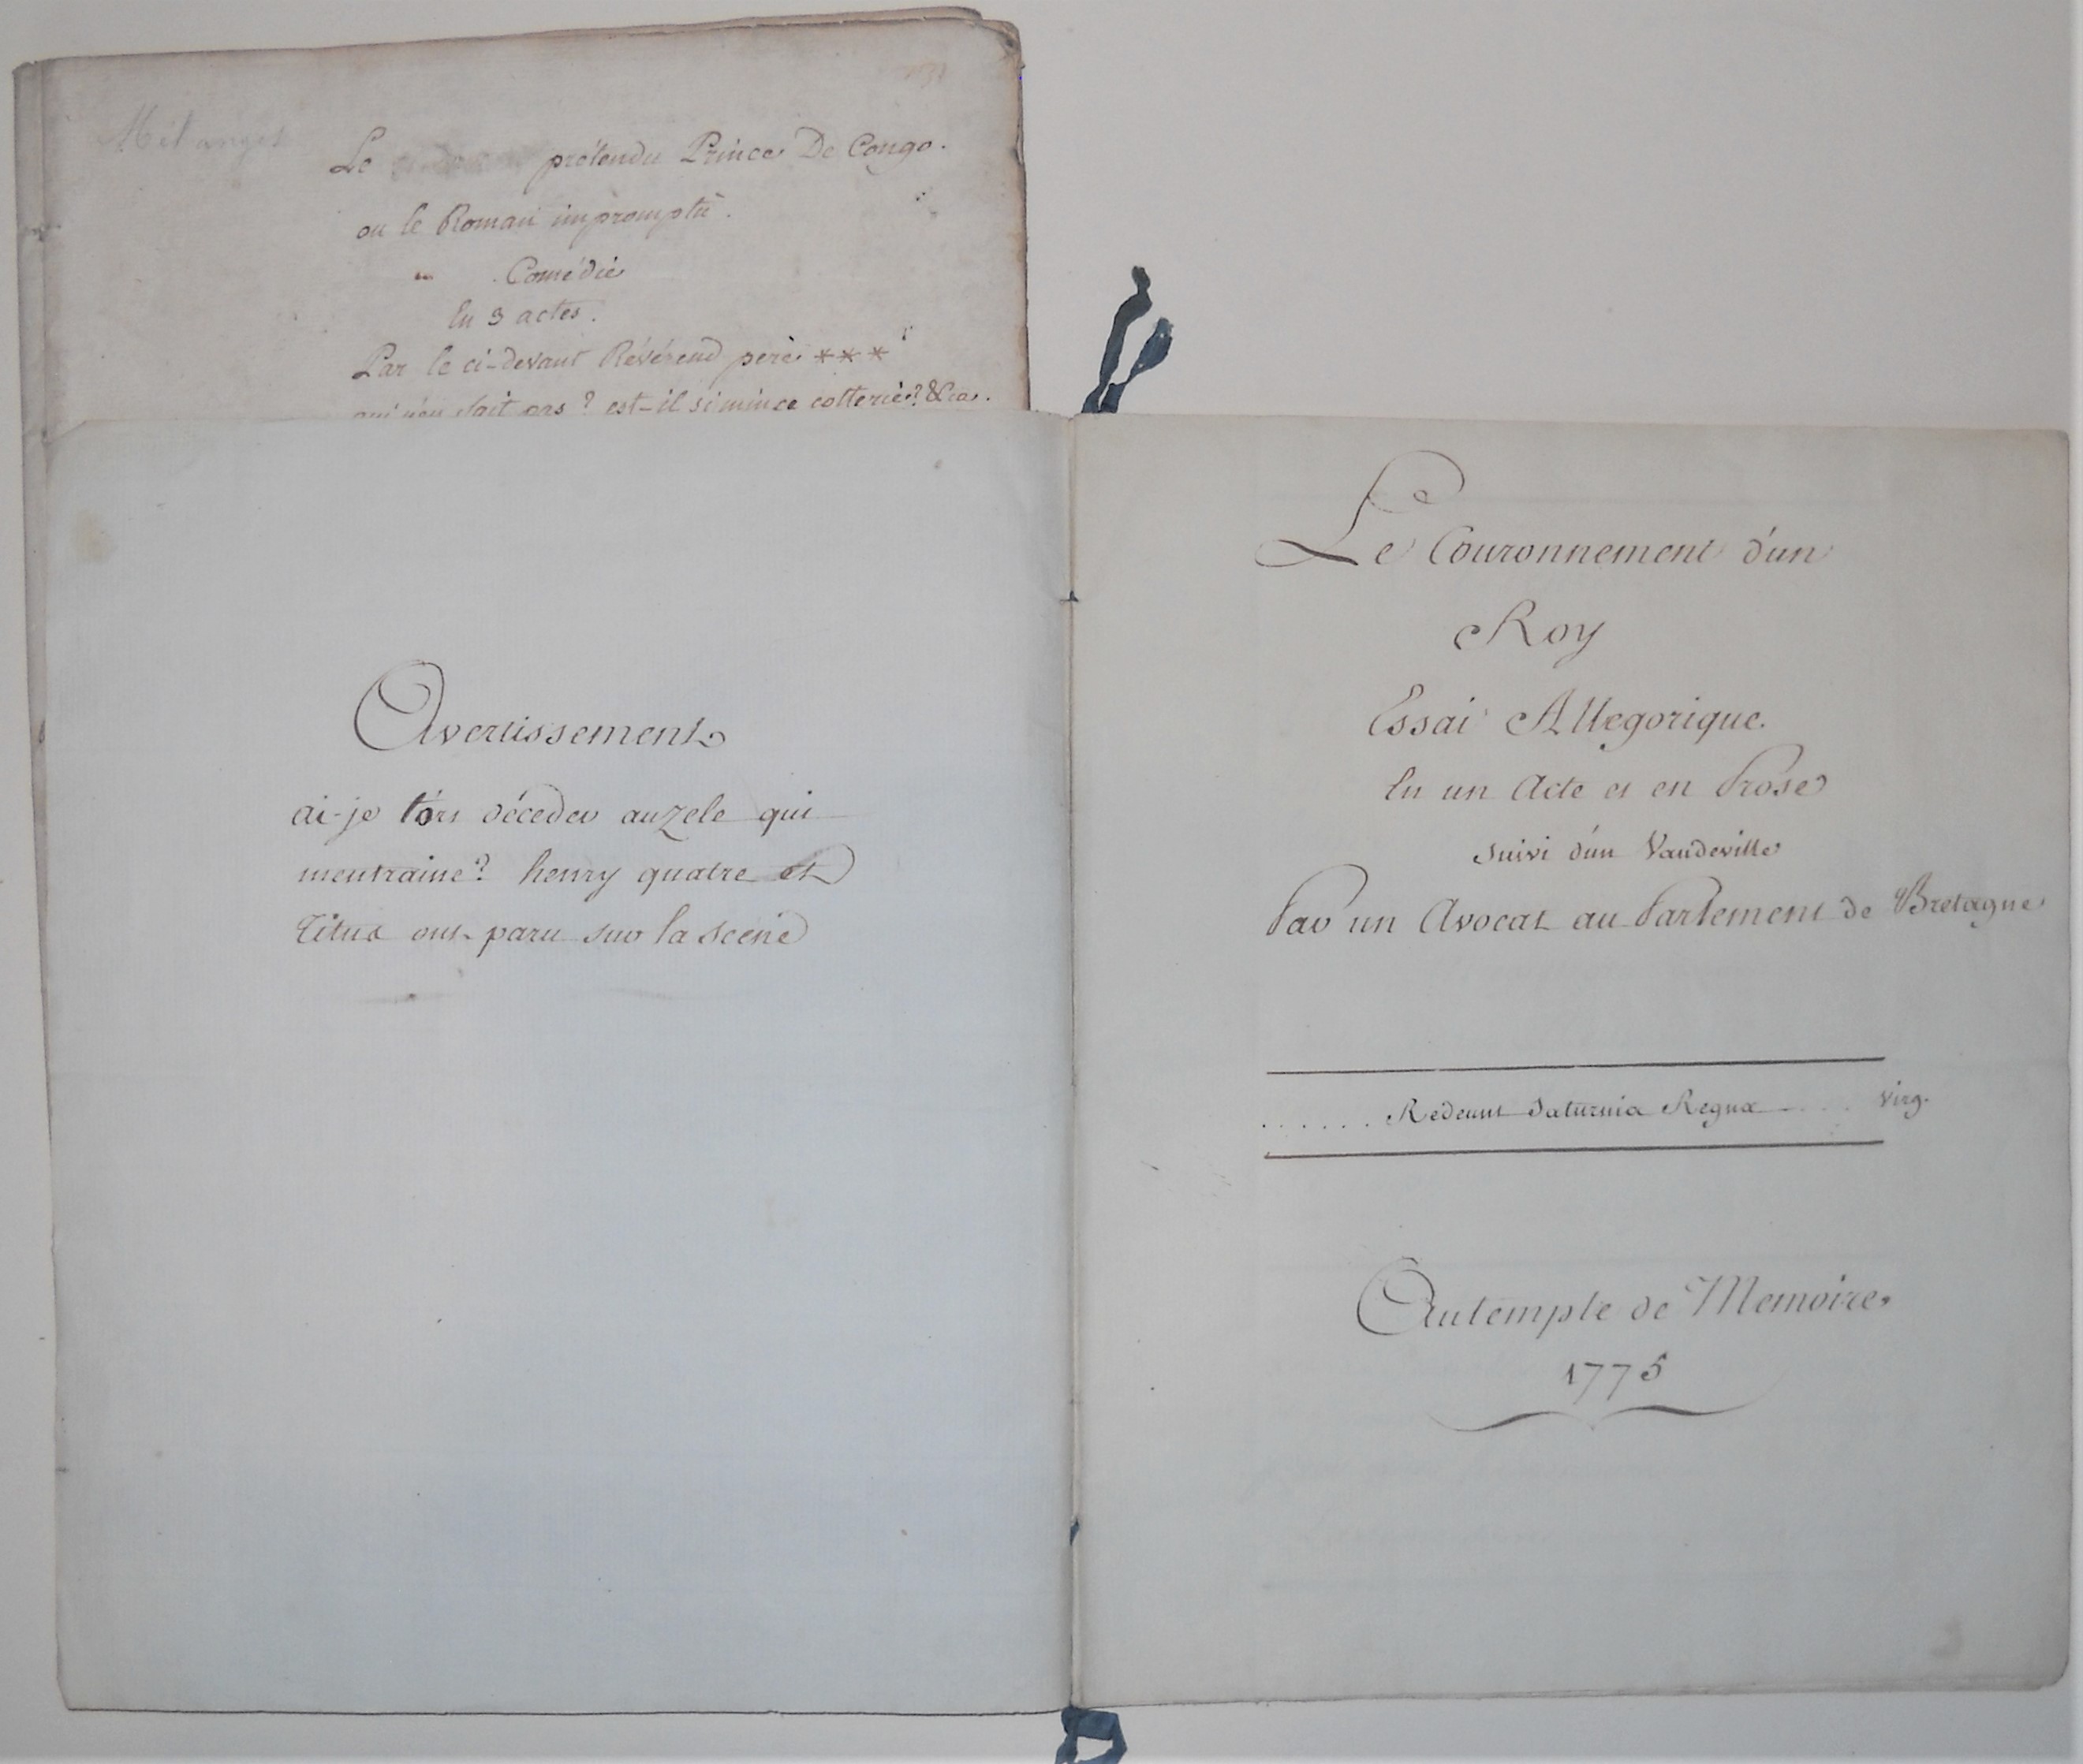 Mélanges
Le prétendu Prince De Congo.
ou le Roman impromptu.
Comédie
En 3 actes.
Par le ci-devant Révérend pere ***
est-il si mince cotterie? &ca.
Avertissement
ai-je tórs déceder auzele qui
mentraine? henry quatre et
Titus ont paru sur la scene
Le Couronnement d'un
Roy
Essai Allegorique.
En un Acte et en Prose
Suivi d'un Vaudeville
Par un Avocat au Parlement de Bretagne
...... Redeunt Saturnia Regna .... virg.
Autemple de Memoire,
1775